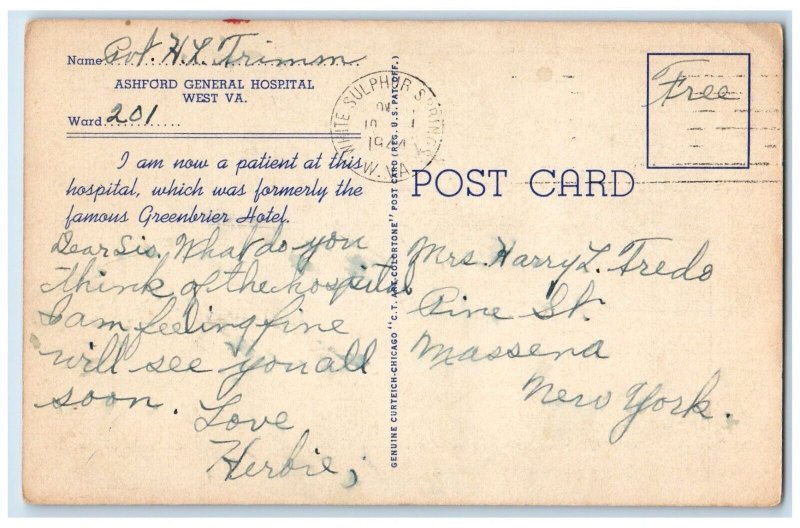 Name Pvt. H. L. Trimm
ASHFORD GENERAL HOSPITAL
WEST VA.
Ward 201
I am now a patient at this
hospital, which was formerly the
famous Greenbrier Hotel.
Dear Sis, What do you
think of the hospital
I am feeling fine
will see you all
soon. Love
Herbie,
GENUINE CURTEICH-CHICAGO "C. T. ART-COLORTONE" POST CARD (REG. U. S. PAT. OFF.)
WHITE SULPHUR SPRINGS
1944
W. VA.
Free
POST CARD
Mrs. Harry L. Fredo
Pine St.
Massena
New York.